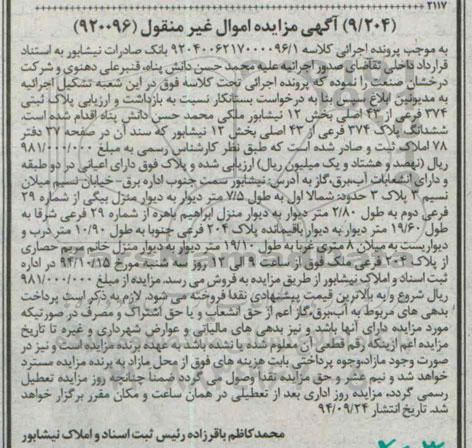 ۲۱۱۷
(۹/۲۰۴) آگهی مزایده اموال غیر منقول (۹۲۰۰۹۶)
به موجب پرونده اجرائی کلاسه ۹۲۰۴۰۰۶۲۱۷۰۰۰۰۹۶/۱ بانک صادرات نیشابور به استناد
قرارداد داخلی تقاضای صدور اجرائیه علیه محمد حسن دانش پناه، قنبرعلی دهنوی و شرکت
درخشان صنعت را نموده که پرونده اجرائی تحت کلاسه فوق در این شعبه تشکیل اجرائیه
به مدیونین ابلاغ سپس بنا به درخواست بستانکار نسبت به بازداشت و ارزیابی پلاک ثبتی
۳۷۴ فرعی از ۴۳ اصلی بخش ۱۲ نیشابور ملکی محمد حسن دانش پناه اقدام شده است.
ششدانگ پلاک ۳۷۴ فرعی از ۴۳ اصلی بخش ۱۲ نیشابور که سند آن در صفحه ۲۷ دفتر
۷۸ املاک ثبت و صادر شده است که طبق نظر کارشناس رسمی به مبلغ ۹۸۱/۰۰۰/۰۰۰
ریال (نهصد و هشتاد و یک میلیون ریال) ارزیابی شده و پلاک فوق دارای اعیانی در دو طبقه
و دارای انشعابات آب،برق،گاز به آدرس: نیشابور سمت جنوب اداره برق- خیابان نسیم میلان
نسیم ۳ پلاک ۳ حدود: شمالا اول به طول ۷/۵ متر دیوار به دیوار منزل بیگی از شماره ۲۹
فرعی دوم به طول ۲/۸۰ متر دیوار به دیوار منزل ابراهیم باهره از شماره ۲۹ فرعی شرقا به
طول ۱۹/۶۰ متر دیوار به دیوار باقیمانده پلاک ۲۰۴ فرعی جنوبا به طول ۱۰/۹۰ متر درب و
دیواریست به میلان ۸ متری غربا به طول ۱۹/۱۰ متر دیوار به دیوار منزل خانم مریم حصاری
از پلاک ۲۰۴ فرعی ملک فوق از ساعت ۹ الی ۱۲ روز سه شنبه مورخ ۹۴/۱۰/۱۵ در اداره
ثبت اسناد و املاک نیشابور از طریق مزایده به فروش می رسد. مزایده از مبلغ ۹۸۱/۰۰۰/۰۰۰
ریال شروع و به بالاترین قیمت پیشنهادی نقدا فروخته می شود. لازم به ذکر است پرداخت
بدهی های مربوط به آب،برق،گاز اعم از حق انشعاب و یا حق اشتراک و مصرف در صورتیکه
مورد مزایده دارای آنها باشد و نیز بدهی های مالیاتی و عوارض شهرداری و غیره تا تاریخ
مزایده اعم ازینکه رقم قطعی آن معلوم شده یا نشده باشد به عهده برنده مزایده است و نیز در
صورت وجود مازاد،وجوه پرداختی بابت هزینه های فوق از محل مازاد به برنده مزایده مسترد
خواهد شد و نیم عشر و حق مزایده نقدا وصول می گردد ضمنا چنانچه روز مزایده تعطیل
رسمی گردد، مزایده روز اداری بعد از تعطیلی در همان ساعت و مکان مقرر برگزار خواهد
شد. تاریخ انتشار ۹۴/۰۹/۲۴
محمدکاظم باقرزاده رئیس ثبت اسناد و املاک نیشابور